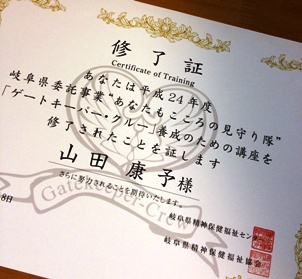 修了証
Certificate of Training
あなたは平成24年度
岐阜県委託事業“あなたもこころの見守り隊”
「ゲートキーパー・クルー」養成のための講座を
修了されたことを証します
山田 康予様
Gatekeeper-Crew
さらに努力されることを期待いたします。
8日
岐阜県精神保健福祉セン
岐阜県精神保健福祉協会